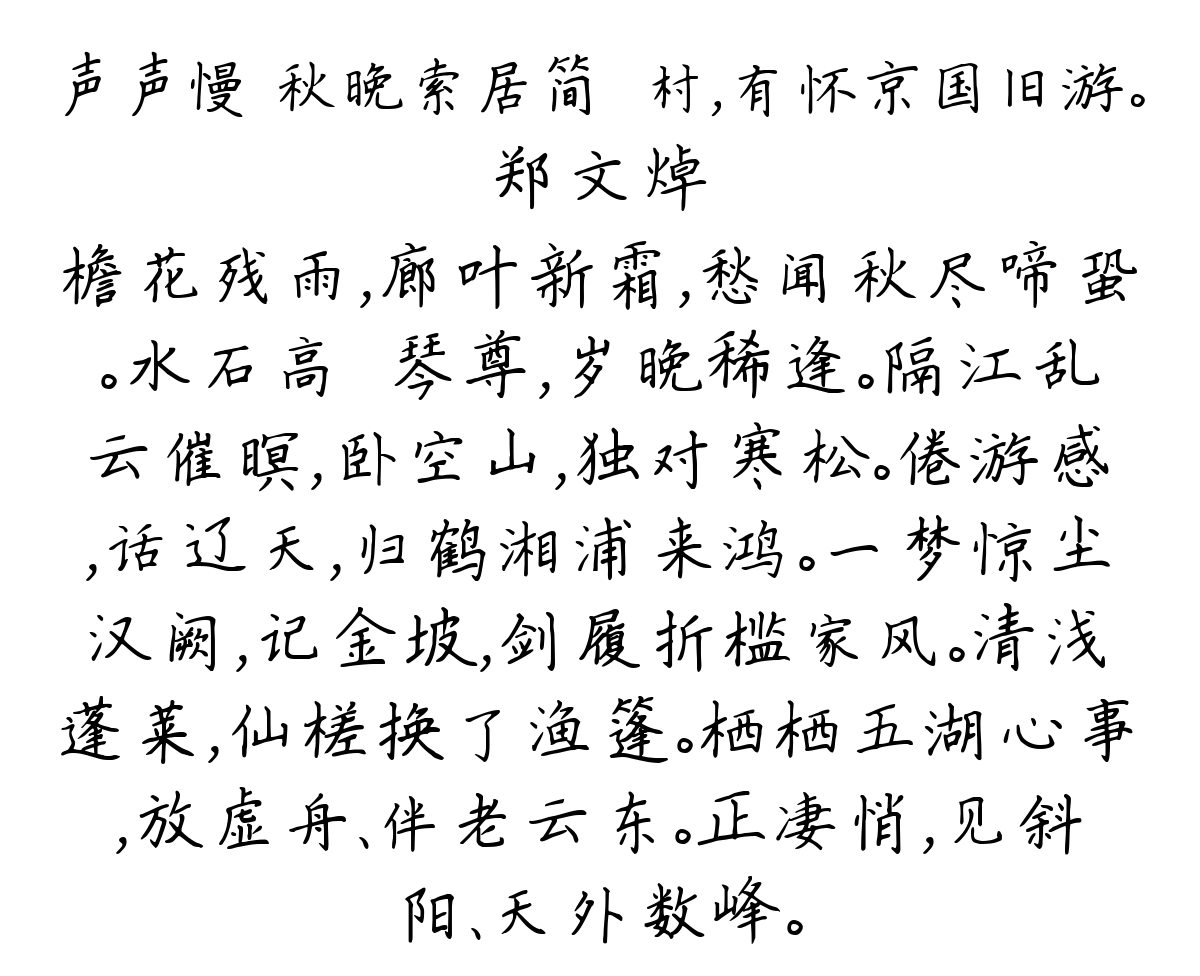 声声慢 秋晚索居简 村,有怀京国旧游。
郑文焯
檐花残雨,廊叶新霜,愁闻秋尽啼蛩
。水石高 琴尊,岁晚稀逢。隔江乱
云催暝,卧空山,独对寒松。倦游感
,话辽天,归鹤湘浦来鸿。一梦惊尘
汉阙,记金坡,剑履折槛家风。清浅
蓬莱,仙槎换了渔篷。栖栖五湖心事
,放虚舟、伴老云东。正凄悄,见斜
阳、天外数峰。